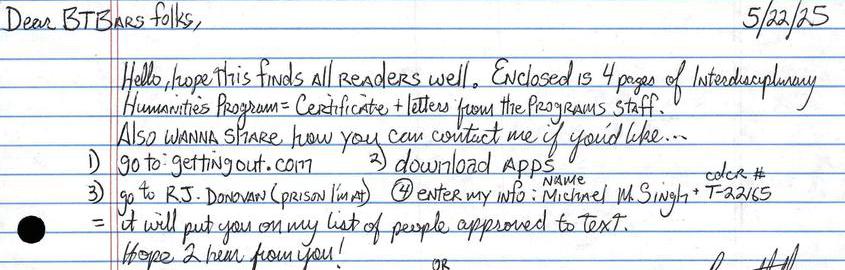 Dear BTBARS folks, 5/22/25
Hello, hope this finds All READERS well. Enclosed is 4 pages of Interdisciplinary
Humanities Program = Certificate + letters from the PROGRAMS STAFF.
Also WANNA SHARE how you can contact me if you'd like...
1) go to: gettingout.com 2) download APPS
3) go to RJ. DONOVAN (PRISON I'm AT) ④ ENTER my info: NAME Michael M Singh + CDCR # T-22165
= it will put you on my list of people approved to text.
Hope 2 hear from you!
OR